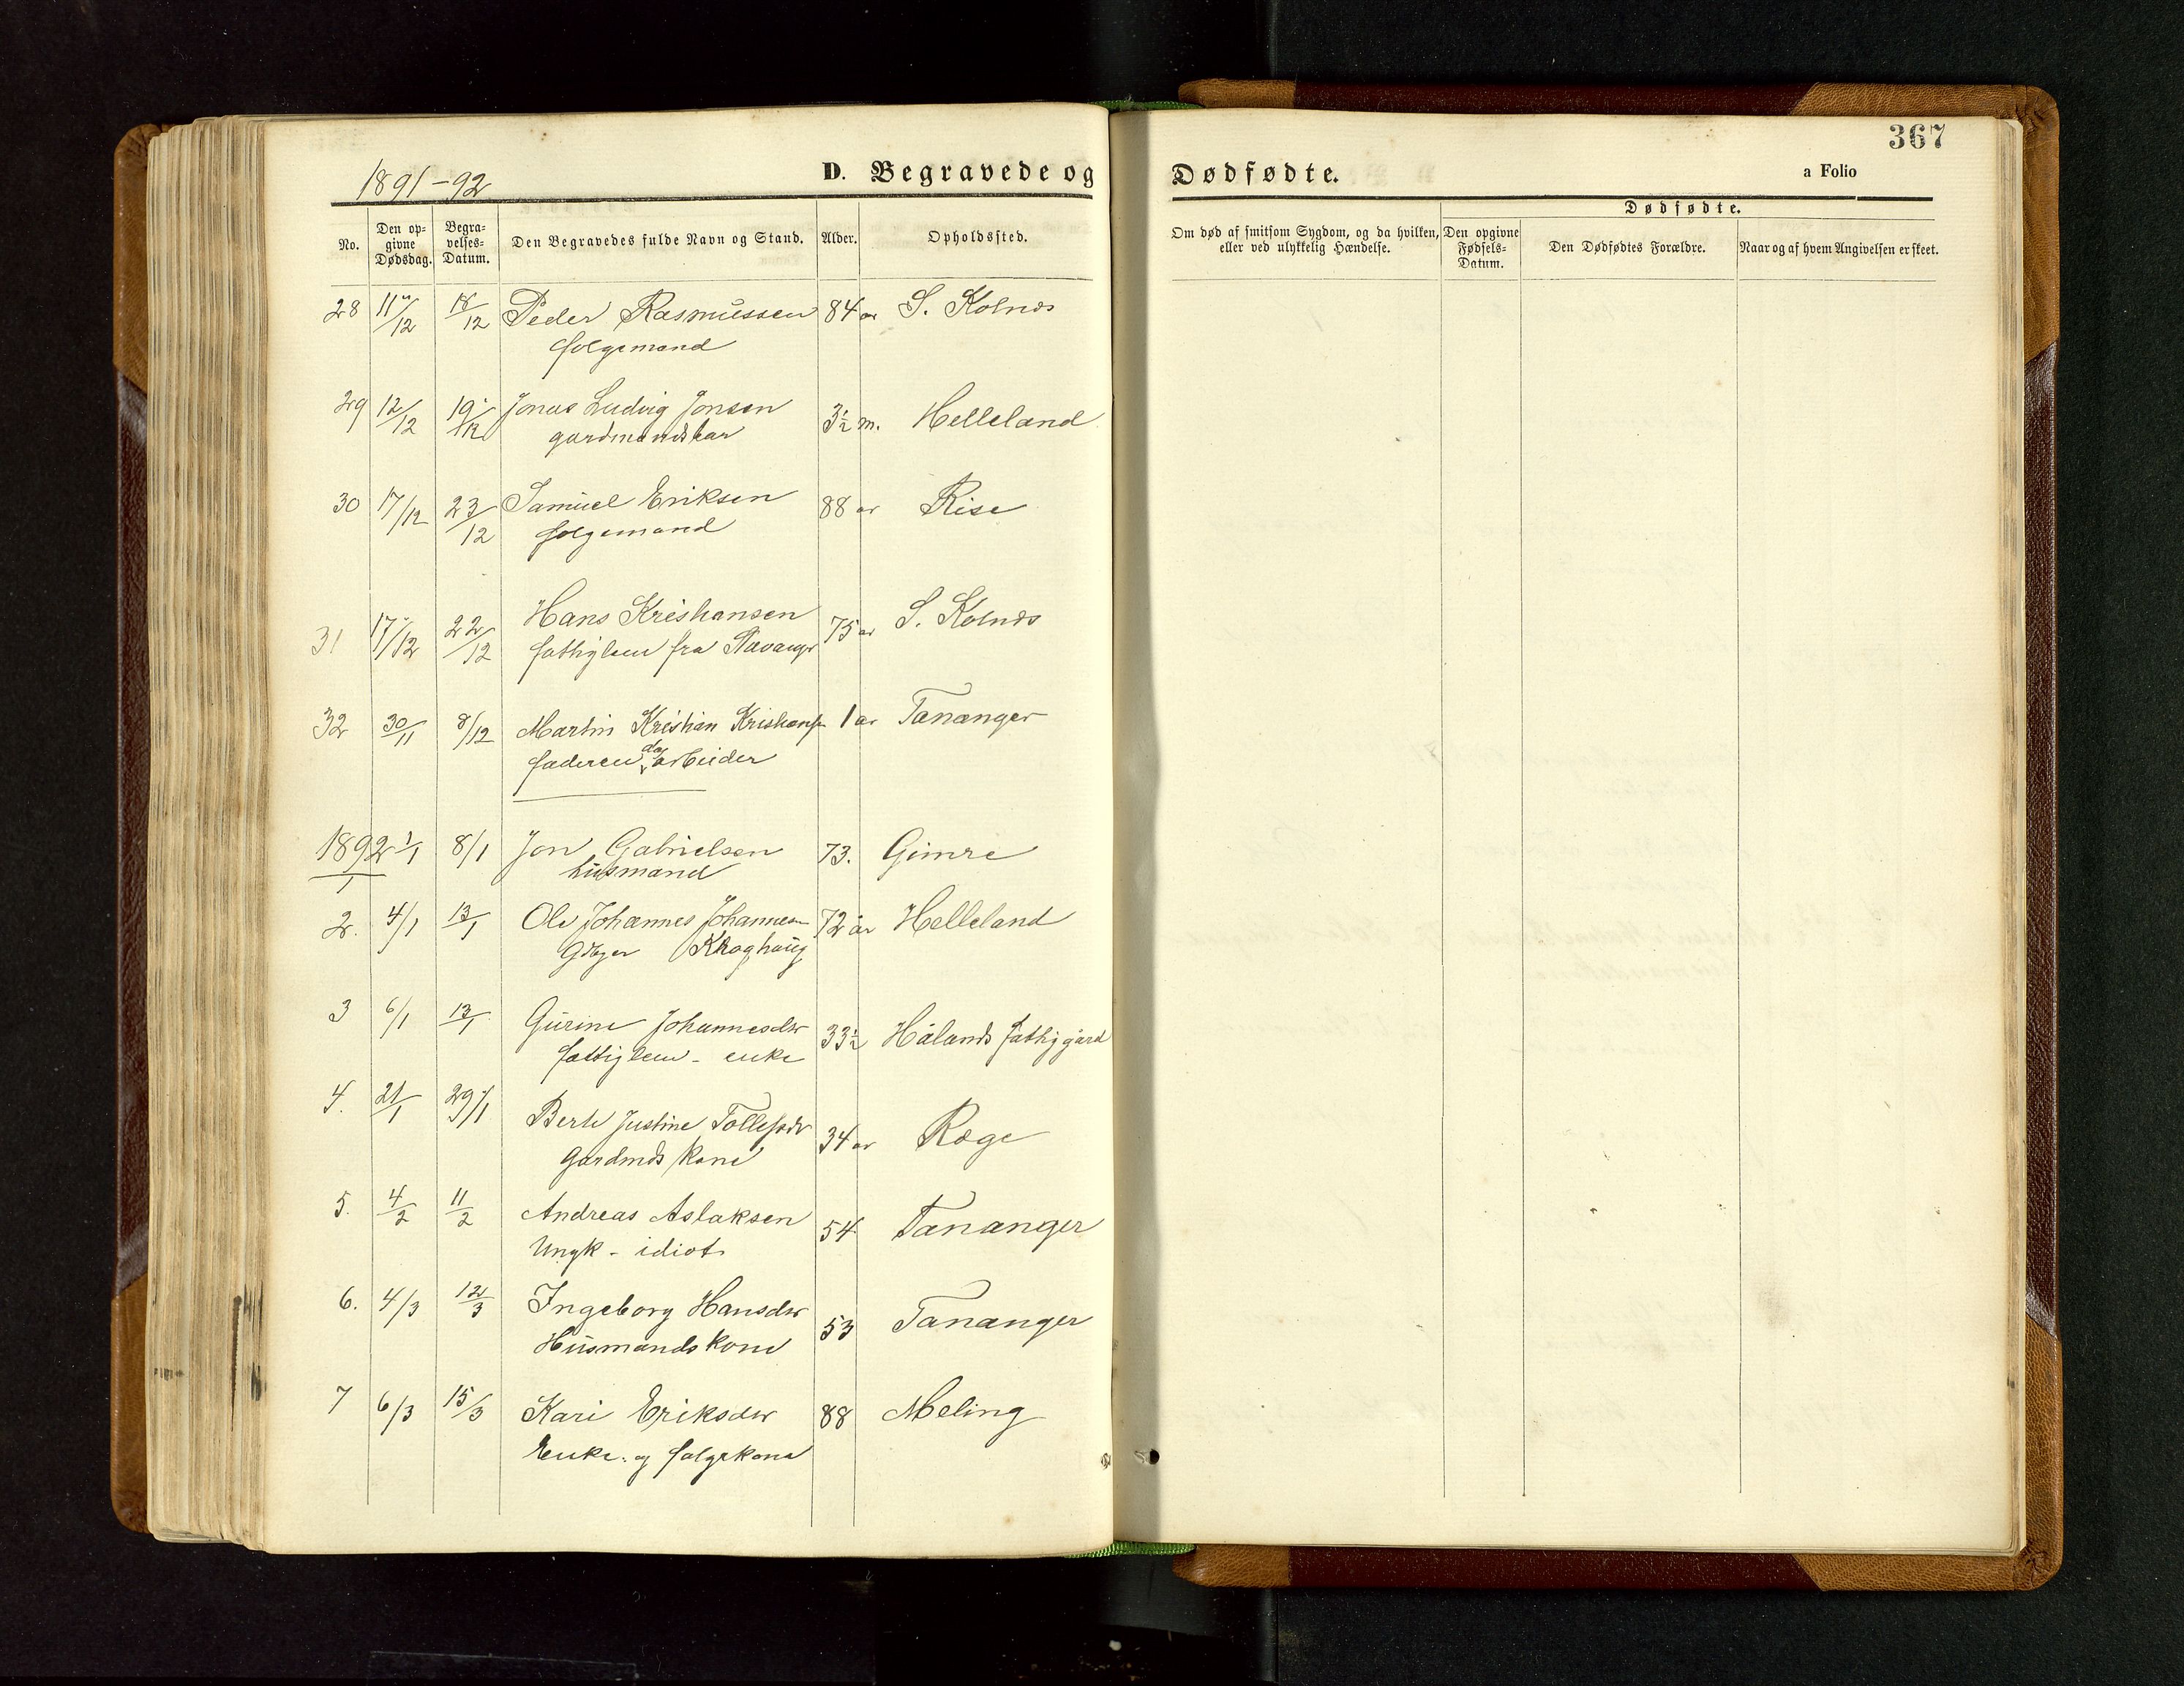 367
1891-92 D. Begravede og Dødfødte. a Folio
Dødfødte.
No. Den opgivne Dødsdag. Begravelses-Datum. Den Begravedes fulde Navn og Stand. Alder. Opholdssted. Om død af smitsom Sygdom, og da hvilken, eller ved ulykkelig Hændelse. Den opgivne Fødsels-Datum. Den Dødfødtes Forældre. Naar og af hvem Angivelsen er skeet.
28 11/12 18/12 Peder Rasmussen 84 ar S. Kolnes
folgemand
29 12/12 19/12 Jonas Ludvig Jonsen 3½ m. Helleland
gardmandsbar
30 17/12 23/12 Samuel Eriksen 88 ar Risa
folgemand
31 17/12 22/12 Hans Kristiansen 75 ar S. Kolnes
fattiglem fra Stavanger
32 30/11 8/12 Martin Kristian Kristiansen 1 ar Tananger
faderen arbeider
1892
1 1/1 8/1 Jon Gabrielsen 73. Gimre
husmand
2. 4/1 13/1 Ole Johannes Johannesen 72 år Helleland
Gdeger Kroghaug
3 6/1 13/1 Gurine Johannesdtr 33½ Hålands fattiggård
fattiglem - enke
4. 21/1 29/1 Berte Justine Tollefsdtr 34 ar Røge
Gardmds kone
5. 4/2 11/2 Andreas Aslaksen 54 Tananger
Ungk - idiot
6. 4/3 12/3 Ingeborg Hansdtr 53 Tananger
Husmandskone
7 6/3 15/3 Kari Eriksdtr 88 Meling
Enke. og folgekone